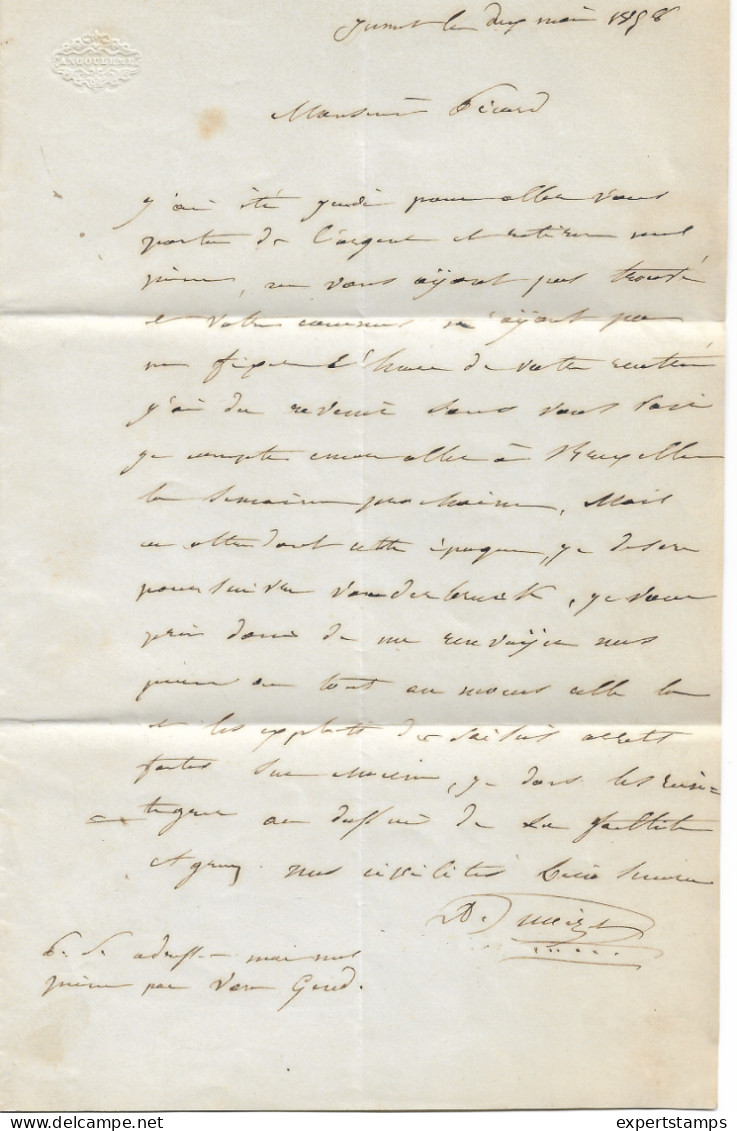 ANGOULEME
Jumet le dix mai 1858
Monsieur Picard
J'ai été jeudi pour aller vous
porter de l'argent et retirer mes
pièces, ne vous ayant pas trouvé
et votre commis n'ayant pu
me fixer l'heure de votre rentrée
j'ai du revenir sans vous voir
je compte encore aller à Bruxelles
la semaine prochaine, Mais
en attendant cette époque, je désire
poursuivre Vanderbruck, je vous
prie donc de me renvoyer mes
pièces ou tout au moins celle la
et les exploits de saisies arrets
faites sur, je dois les réin=
tegrer au dossier de sa faillite
Agréez mes civilités bien sincères
P. S. adressez moi mes
pièces par Van Gend.
expertstamps